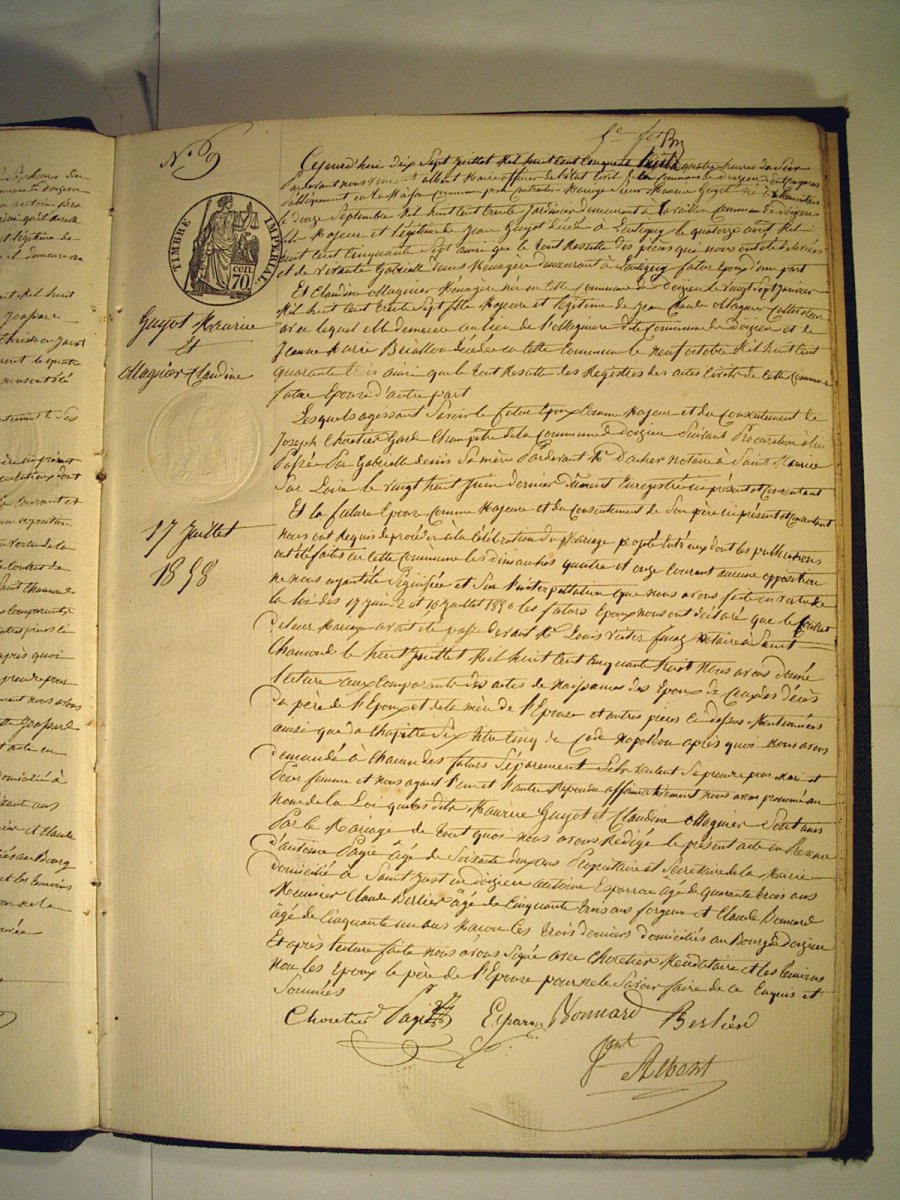 N.o 9
TIMBRE IMPERIAL
cen. 70
Guyot Maurice
et
Magnier Claudine
17 Juillet
1858
Cejourd'huy dix Sept Juillet Mil huit cent Cinquante huit à quatre heures du Soir
Pardevant nous Vincent Albert Maire officier de l'état Civil de la Commune de Doizieu ont Comparus
publiquement en la Maison Commune pour Contracter Mariage Sieur Maurice Guyot né à
le douze Septembre Mil huit cent trente Jardinier demeurant à Commune de Doizieu
fils Majeur et légitime de Jean Guyot décédé à Lavtigny le quatorze avril Mil
huit cent Cinquante Sept ainsi que le tout Resulte des pièces qui nous ont été
et de vivante Gabrielle denis Ménagère demeurant à Lavtigny futur Epoux d'une part
Et Claudine Magnier Ménagère née en cette Commune de Doizieu le vingt sept Janvier
Mil huit cent trente Sept fille Majeure et légitime de Jean Claude Magnier Cultivateur
avec lequel elle demeure au lieu de Commune de Doizieu et de
Jeanne Marie décédée en cette Commune le neuf octobre Mil huit cent
quarante trois ainsi que le tout Resulte des Registres des actes Civils de cette Commune
future Epouse d'autre part
Lesquels agissant Savoir le futur Epoux Comme Majeur et du Consentement de
Joseph Choretier Garde Champêtre de la Commune de Doizieu Suivant Procuration à lui
Passée Par Gabrielle denis Sa mère Pardevant Me notaire à Saint Maurice
Sur Loire le vingt huit Juin dernier dûment Enregistrée ici présent et Consentant
Et la future Epouse Comme Majeure et du Consentement de Son père ici présent et Consentant
nous ont Requis de procéder à la Célébration du Mariage projeté entr'eux dont les publications
ont été faites en cette Commune les dimanches quatre et onze Courant aucune opposition
ne nous ayant été Signifiée et Sur l'interpellation que nous avons faite en vertu de
la loi des 17 juin 2 et 10 Juillet 1850 les futurs Epoux nous ont déclaré que le Contrat
de leur Mariage avait été passé devant Me Louis notaire à Saint
Chamond le huit Juillet Mil huit cent Cinquante huit nous avons donné
lecture aux Comparants des actes de Naissances des Epoux de Ceux de décès
du père de l'Epoux et de la mère de l'Epouse et autres pièces Ci dessus Mentionnées
ainsi que du Chapitre Six titre Cinq du Code Napoléon après quoi nous avons
demandé à Chacun des futurs Séparément S'ils veulent Se prendre pour Mari et
Pour femme et nous ayant l'un et l'autre Répondu affirmativement nous avons prononcé au
nom de la Loi que lesdits Maurice Guyot et Claudine Magnier Sont unis
Par le Mariage de tout quoi nous avons Rédigé le présent acte en Présence
d'antoine Pagie âgé de Soixante deux ans Propriétaire et Secrétaire de la Mairie
domicilié à Saint Just en doizieu antoine Esparron âgé de quarante trois ans
Menuisier Claude Berlier âgé de Cinquante trois ans forgeur et Claude Bonnard
âgé de Cinquante un ans Macon les trois derniers domiciliés au Bourg de doizieu
Et après lecture faite nous avons Signé avec Choretier Mandataire et les témoins
non les Epoux le père de l'Epouse pour ne le Savoir faire de ce Enquis et
Sommés
Choretier Pagie Esparron Bonnard Berlier
Albert